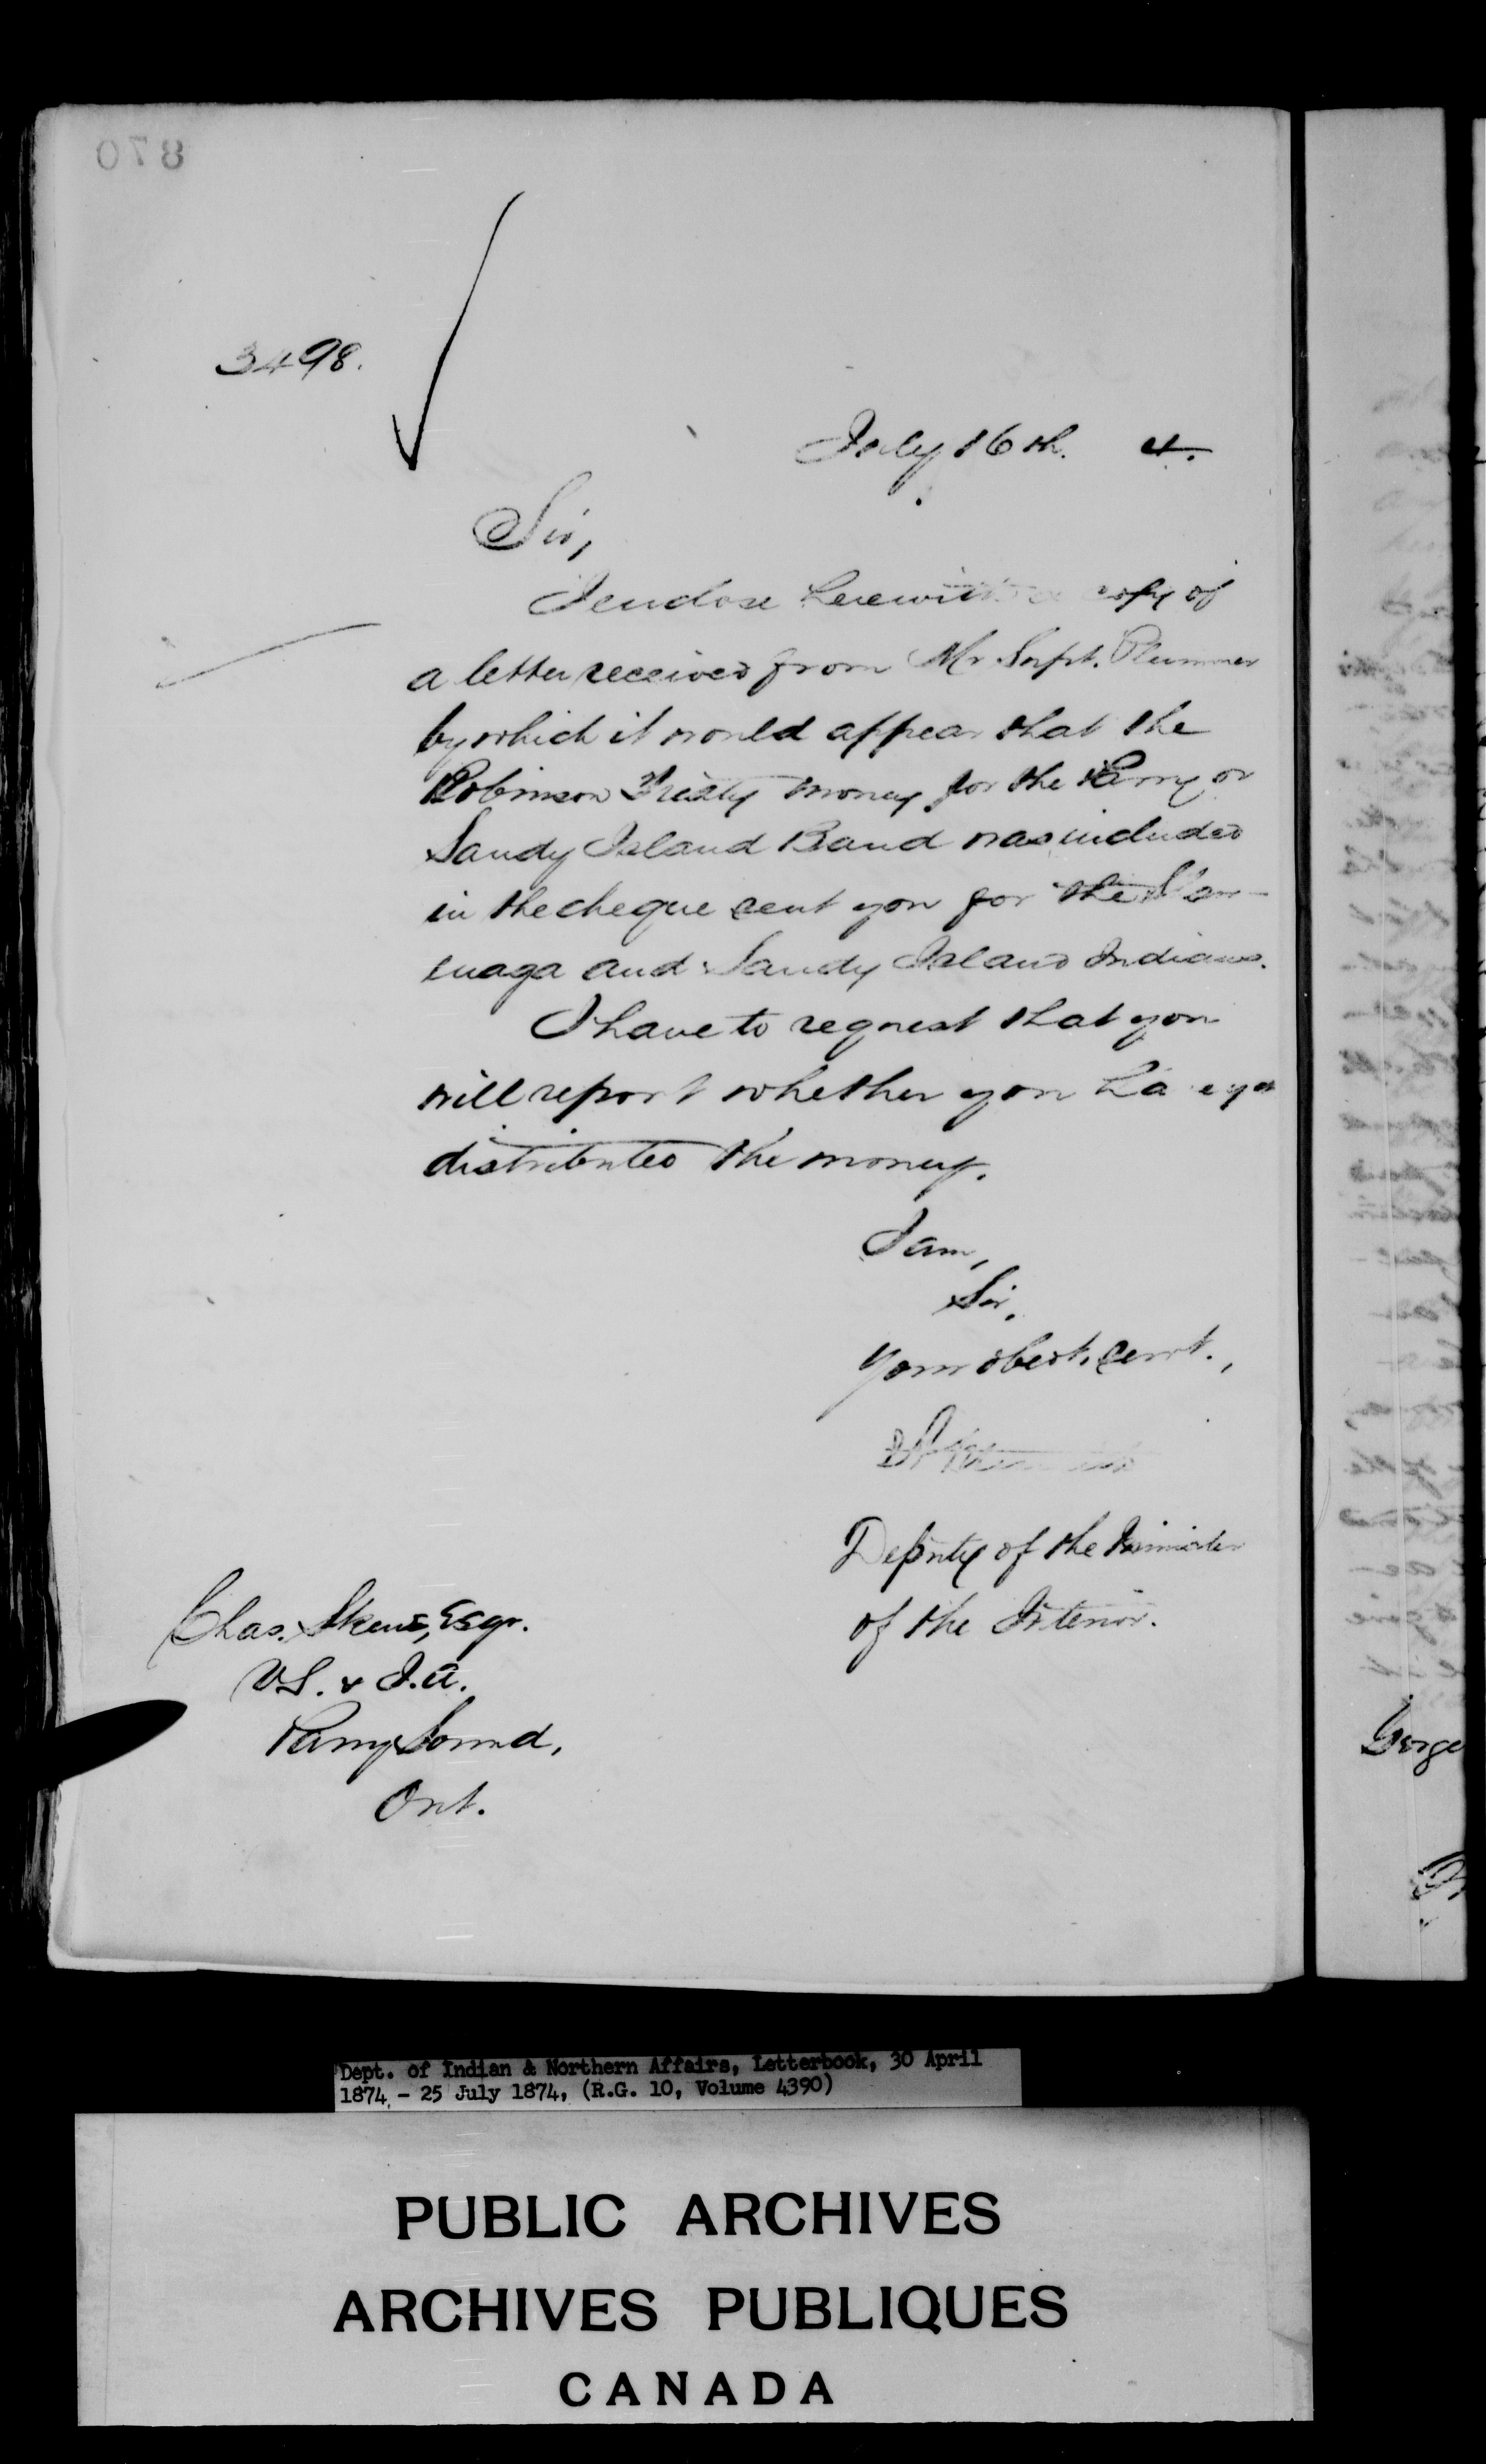 870
3498.
July 16th. 4.
Sir,
I enclose herewith a copy of
a letter received from Mr Supt. Plummer
by which it would appear that the
Robinson Treaty money for the Parry or
Sandy Island Band was included
in the cheque sent you for the
and Sandy Island Indians.
I have to request that you
will report whether you have yet
distributed the money.
I am,
Sir,
Your obedt. servt.,
Deputy of the Minister
of the Interior.
Chas. Skene, Esqr.
V.S. & I.A.
Parry Sound,
Ont.
George
Dept. of Indian & Northern Affairs, Letterbook, 30 April
1874, - 25 July 1874, (R.G. 10, Volume 4390)
PUBLIC ARCHIVES
ARCHIVES PUBLIQUES
CANADA